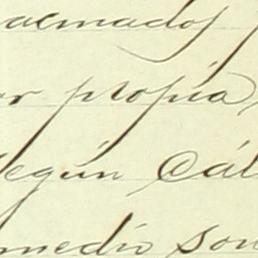 acmados
or propia
según cál
medio son